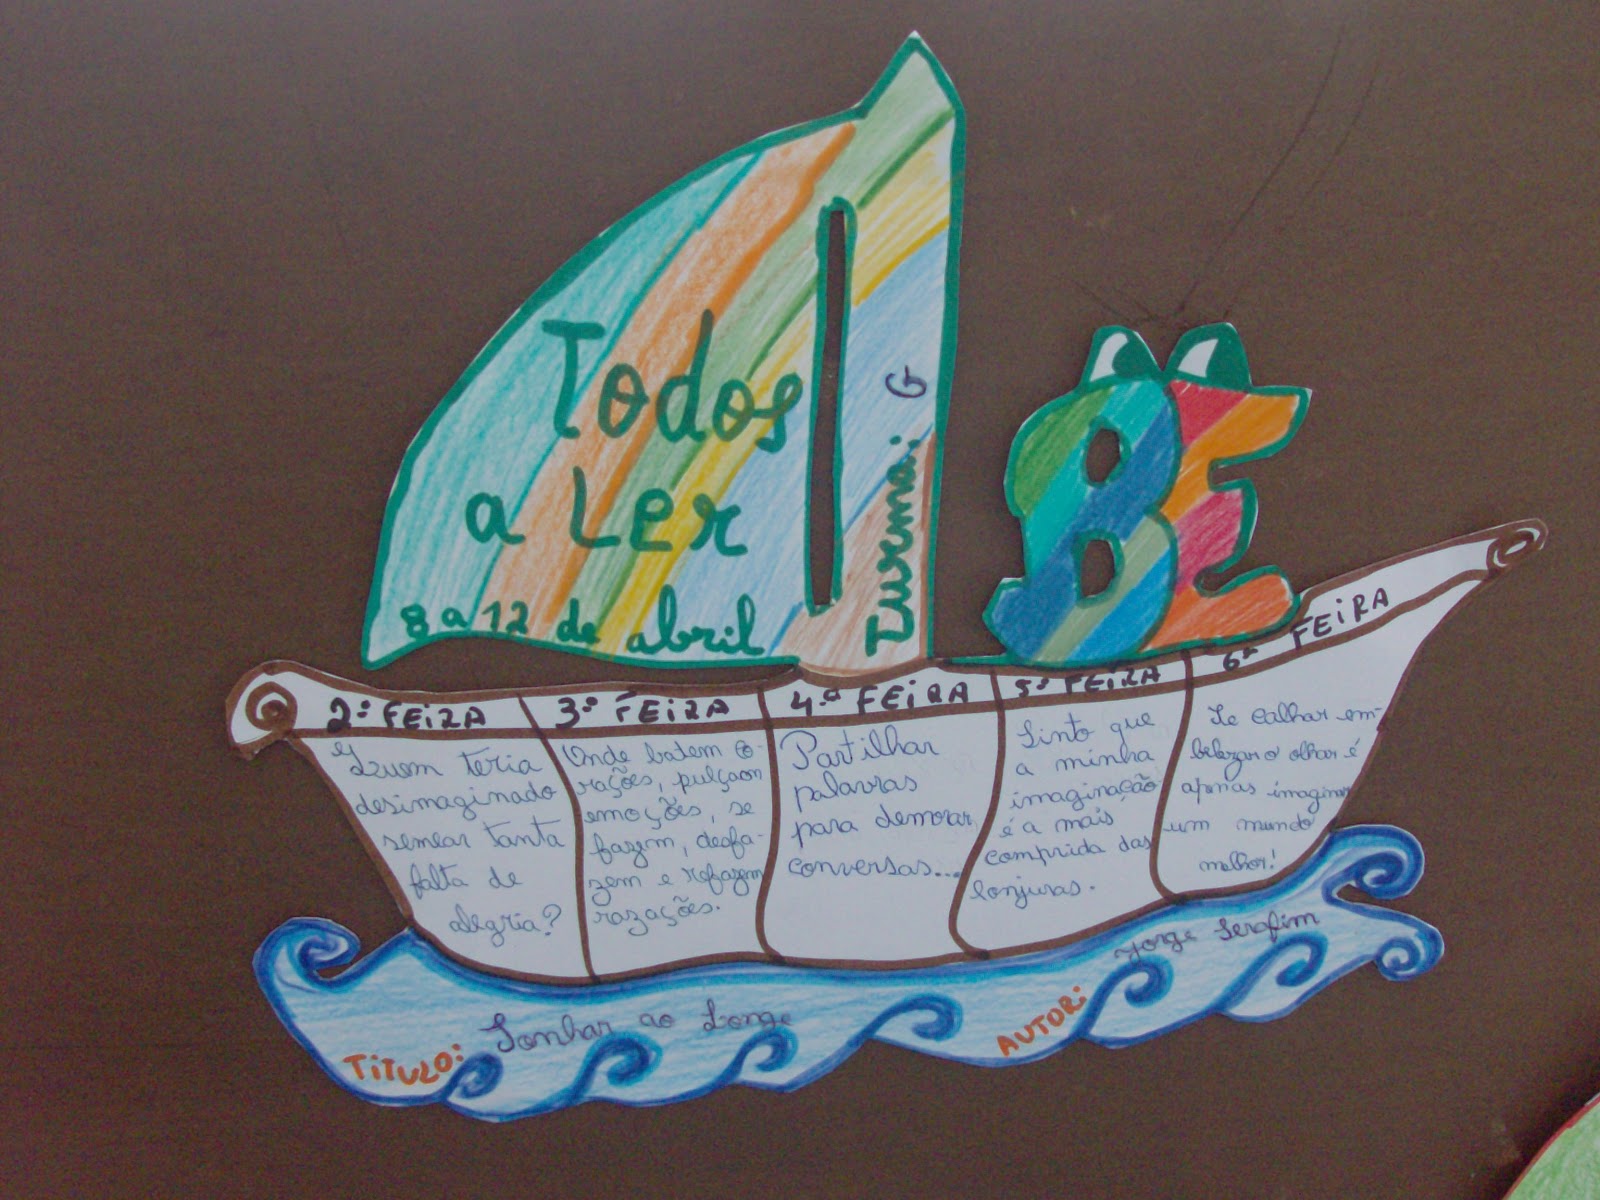 Todos
a Ler
8 a 12 de abril
Turma: G
BE
2ª FEIRA
Quem teria
desimaginado
semear tanta
falta de
alegria?
3ª FEIRA
Onde batem co-
rações, pulçaon
emoções, se
fazem, desfa-
zem e refazem
razações.
4.ª FEIRA
Partilhar
palavras
para demorar
conversas...
5ª FEIRA
Sinto que
a minha
imaginação
é a mais
comprida das
lonjuras.
6ª FEIRA
Se calhar em-
belezar o olhar é
apenas imaginar
um mundo
melhor!
TÍTULO: Sonhar ao Longe
AUTOR: Jorge Serafim